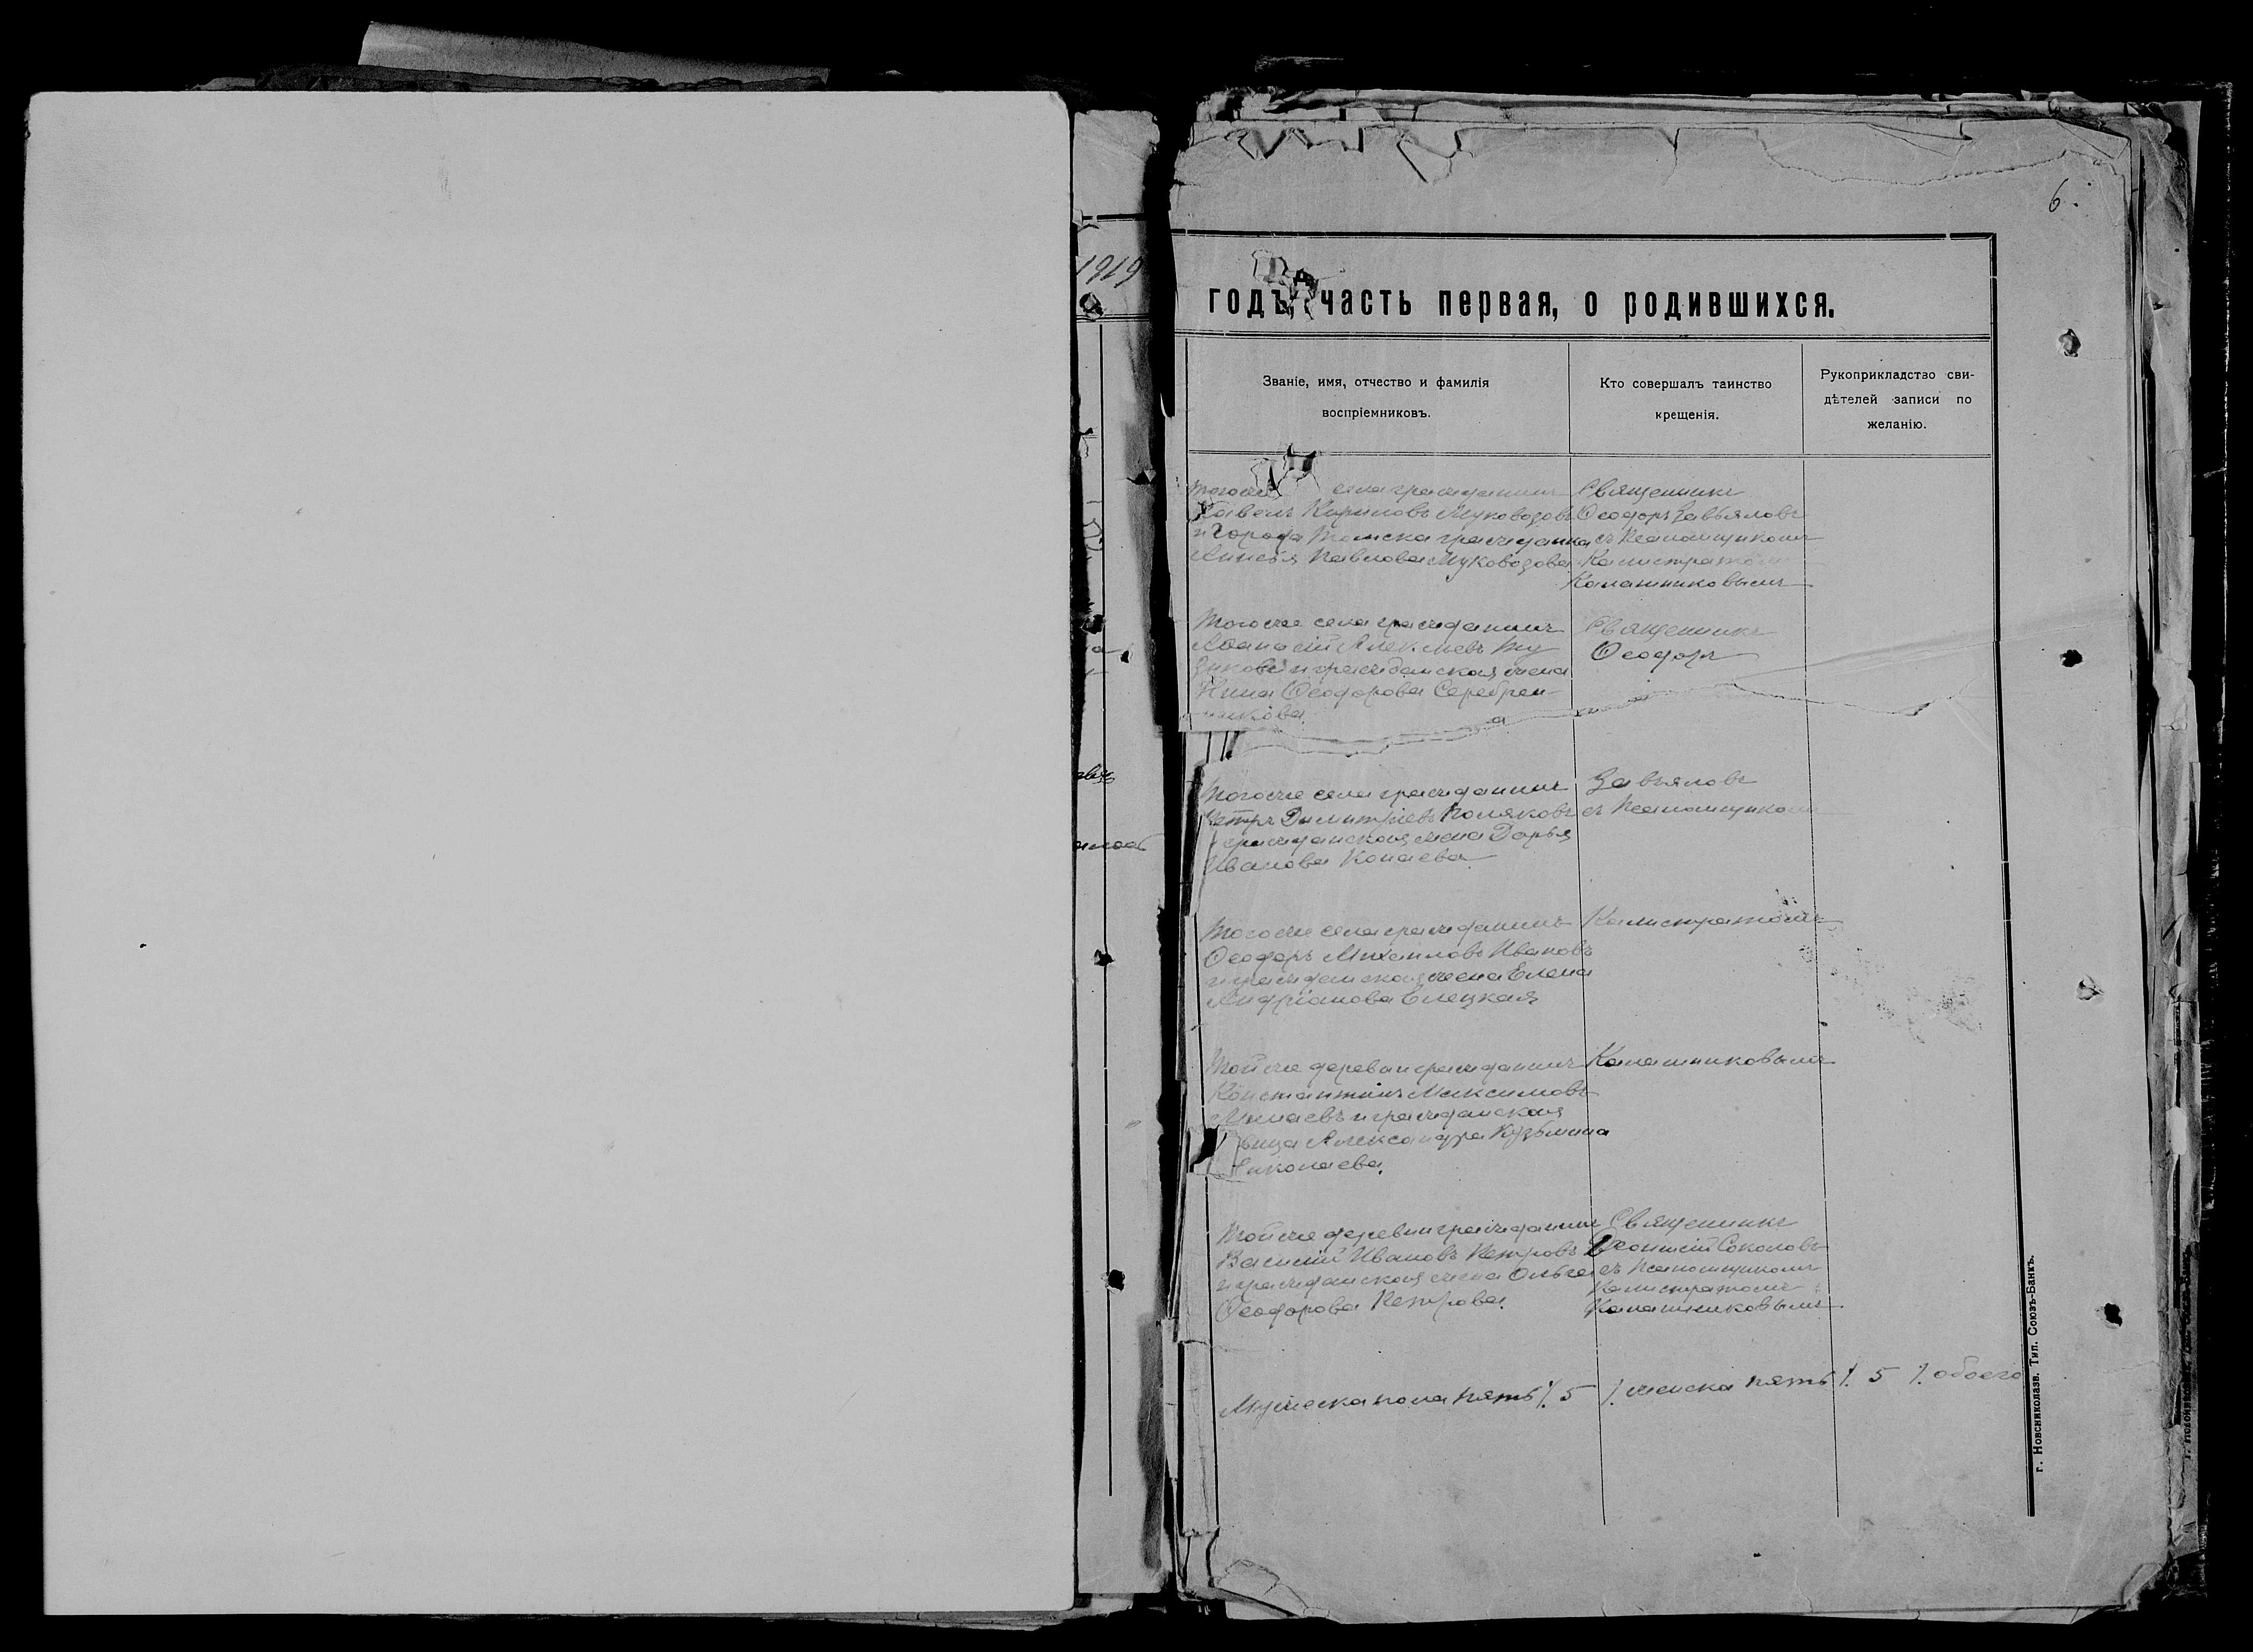 6.
1919
годъ, часть первая, о родившихся.
Званіе, имя, отчество и фамилія
воспріемниковъ.
Кто совершалъ таинство
крещенія.
Рукоприкладство сви-
дѣтелей записи по
желанію.
тогоже села гражданинъ
Павелъ Кириловъ Муковозовъ
и города Томска гражданка
Анисья Павлова Муковозова
Священникъ
Ѳеодоръ Завьяловъ
съ Псаломщикомъ
Калистратомъ
Калашниковымъ
Тогоже села гражданинъ
Аѳанасій Алексѣевъ
и гражданская жена
Нина Ѳеодорова Серебрен-
никова.
Священникъ
Ѳеодоръ
Тогоже села гражданинъ
Петръ Димитріевъ Поляковъ
гражданская жена Дарья
Иванова Копаева
Завьяловъ
съ Псаломщикомъ
Тогоже села гражданинъ
Ѳеодоръ Михаиловъ Ивановъ
и гражданская жена Елена
Андріанова Елецкая
Калистратомъ
Тойже деревни гражданинъ
Константинъ Максимовъ
и гражданская
вица Александра Кузьмина
Николаева.
Калашниковымъ
Тойже деревни гражданинъ
Василій Ивановъ Петровъ
и гражданская жена Ольга
Ѳеодорова Петрова.
Священникъ
Леонтій Соколовъ
съ Псаломщикомъ
Калистратомъ
Калашниковымъ.
Мужеска пола пять /. 5 /. женска пять /. 5 /. обоего
г. Новониколаев. Тип. Союзъ-Банкъ.